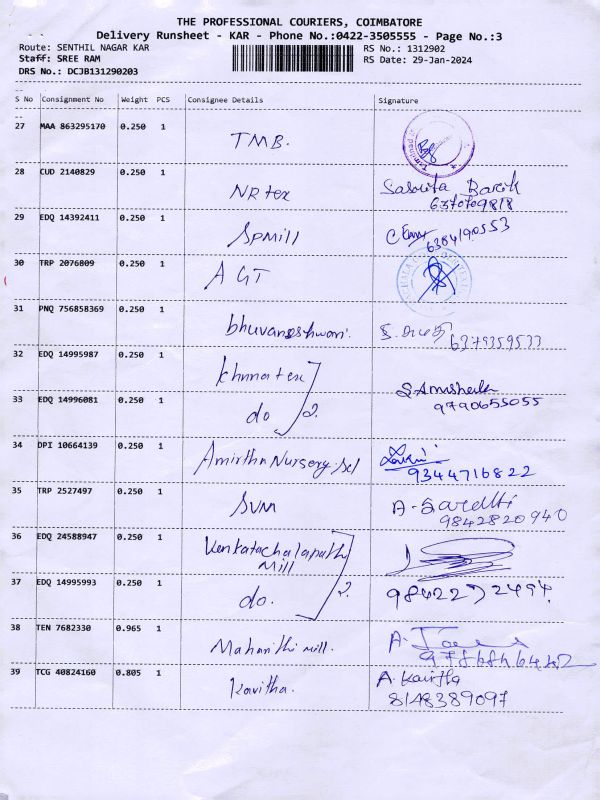 THE PROFESSIONAL COURIERS, COIMBATORE
Delivery Runsheet - KAR - Phone No.:0422-3505555 - Page No.:3
Route: SENTHIL NAGAR KAR RS No.: 1312902
Staff: SREE RAM RS Date: 29-Jan-2024
DRS No.: DCJB131290203
S No Consignment No Weight PCS Consignee Details Signature
27 MAA 863295170 0.250 1
TMB.
28 CUD 2140829 0.250 1
NR tex
Barik
29 EDQ 14392411 0.250 1
SPMill
30 TRP 2076809 0.250 1
AGT
31 PNQ 756858369 0.250 1
bhuvaneshwari
6379359533
32 EDQ 14995987 0.250 1
33 EDQ 14996081 0.250 1
do 2.
9790655055
34 DPI 10664139 0.250 1
Amirtha Nursery.
9344716822
35 TRP 2527497 0.250 1
SVM
9842820940
36 EDQ 24588947 0.250 1
Venkatachalapathi
Mill
37 EDQ 14995993 0.250 1
do. 2.
38 TEN 7682330 0.965 1
mill.
39 TCG 40824160 0.805 1
Kavitha. A. Kavitha
8148389097